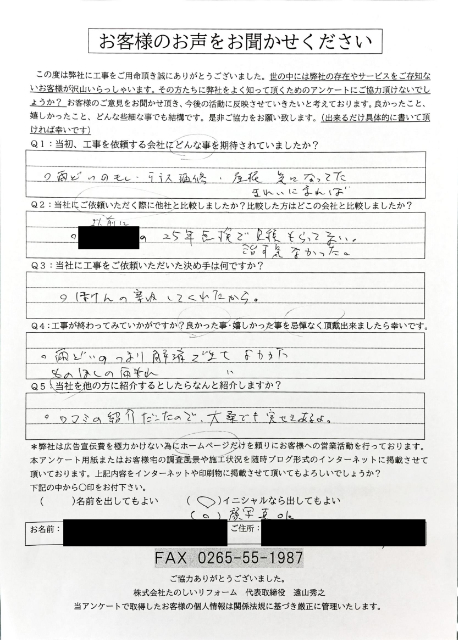 お客様のお声をお聞かせください
この度は弊社に工事をご用命頂き誠にありがとうございました。世の中には弊社の存在やサービスをご存知な
いお客様が沢山いらっしゃいます。その方たちに弊社をよく知って頂くためのアンケートにご協力頂けないでし
ょうか？ お客様のご意見をお聞かせ頂き、今後の活動に反映させていきたいと考えております。良かったこと、
嬉しかったこと、どんな些細な事でも結構です。是非ご協力をお願い致します。(出来るだけ具体的に書いて頂
ければ幸いです)
Q1：当初、工事を依頼する会社にどんな事を期待されていましたか？
雨どいの 補修・屋根 気になってた
きれいになれば
Q2：当社にご依頼いただく際に他社と比較しましたか？比較した方はどこの会社と比較しましたか？
以前に
の 25年点検で見積もらってない。
治す気なかった。
Q3：当社に工事をご依頼いただいた決め手は何ですか？
ほけんの してくれたから。
Q4：工事が終わってみていかがですか？良かった事・嬉しかった事を忌憚なく頂戴出来ましたら幸いです。
雨どいのつまり解消できて よかった
ものほしの 〃
Q5：当社を他の方に紹介するとしたらなんと紹介しますか？
クチミの紹介だったので、
＊弊社は広告宣伝費を極力かけない為にホームページだけを頼りにお客様への営業活動を行っております。
本アンケート用紙またはお客様宅の調査風景や施工状況を随時ブログ形式のインターネットに掲載させて
頂いております。上記内容をインターネットや印刷物に掲載させて頂いてもよろしいでしょうか？
下記の中から〇印をお付下さい。
(　　)名前を出してもよい　(　　)イニシャルなら出してもよい
(〇) 顔写真ok
お名前：　ご住所：
FAX 0265-55-1987
ご協力ありがとうございました。
株式会社たのしいリフォーム　代表取締役　遠山秀之
当アンケートで取得したお客様の個人情報は関係法規に基づき厳正に管理いたします。